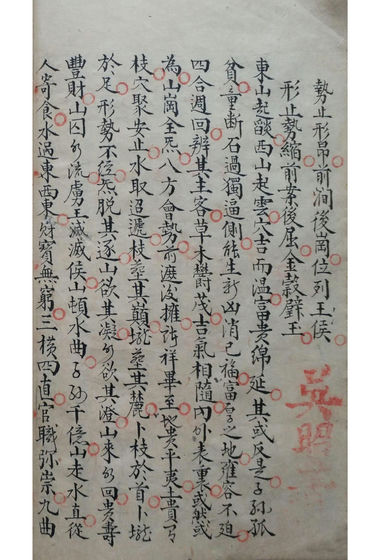 勢止形昂前澗後崗位列王侯
形止勢縮前案後屈金穀璧玉
東山起燄西山起雲穴吉而温富貴綿延其或反是子孫孤
貧童断石過獨逼側能生新凶消已福富貴之地雍容不迫
四合週回辨其主客草木欝茂吉氣相隨內外表裏或然或
為山崗全氣八方會勢前遮後擁諸祥畢至地貴平夷土貴有
枝穴聚安止水取迢遞枝葬其巔壠葬其麓卜枝於首卜壠
於足形勢不经氣脱其逐山欲其凝水欲其澄山來水回貴壽
豐財山囚水流虜王滅侯山頓水曲子孫千億山走水直從
人寄食水過東西東財寶無窮三横四直官職弥崇九曲